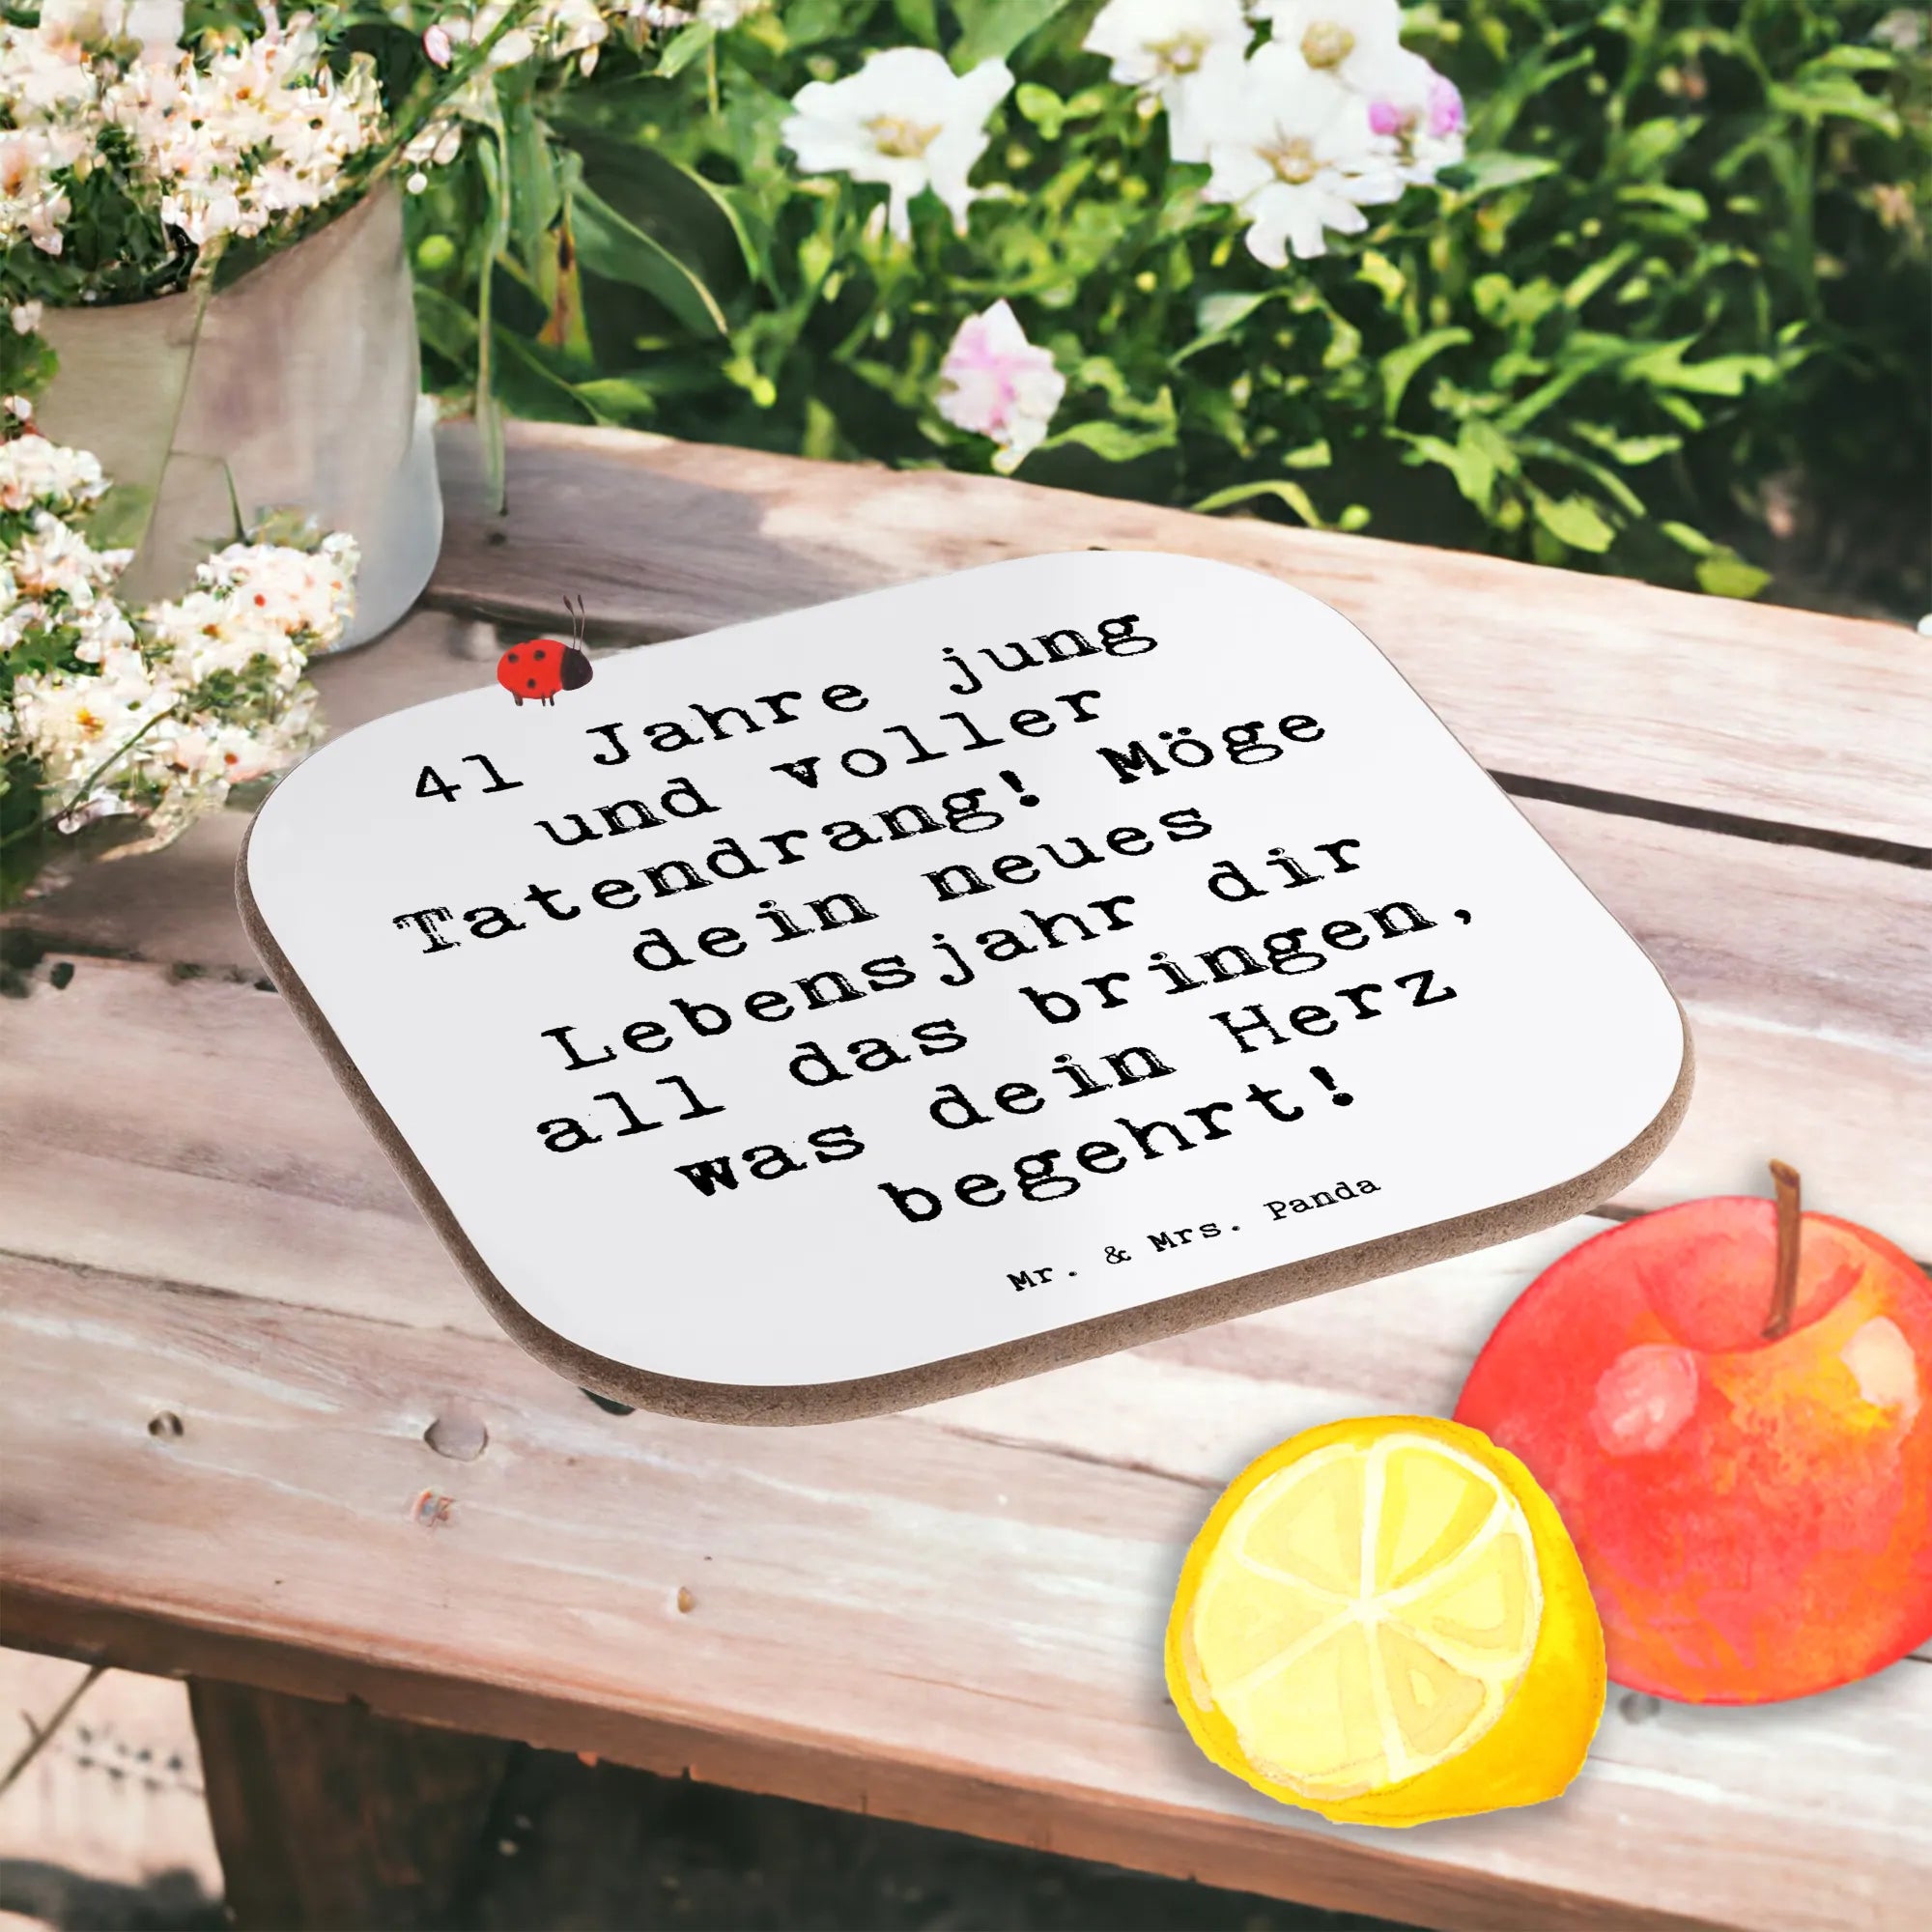 41 Jahre jung
und voller
Tatendrang! Möge
dein neues
Lebensjahr dir
all das bringen,
was dein Herz
begehrt!
Mr. & Mrs. Panda